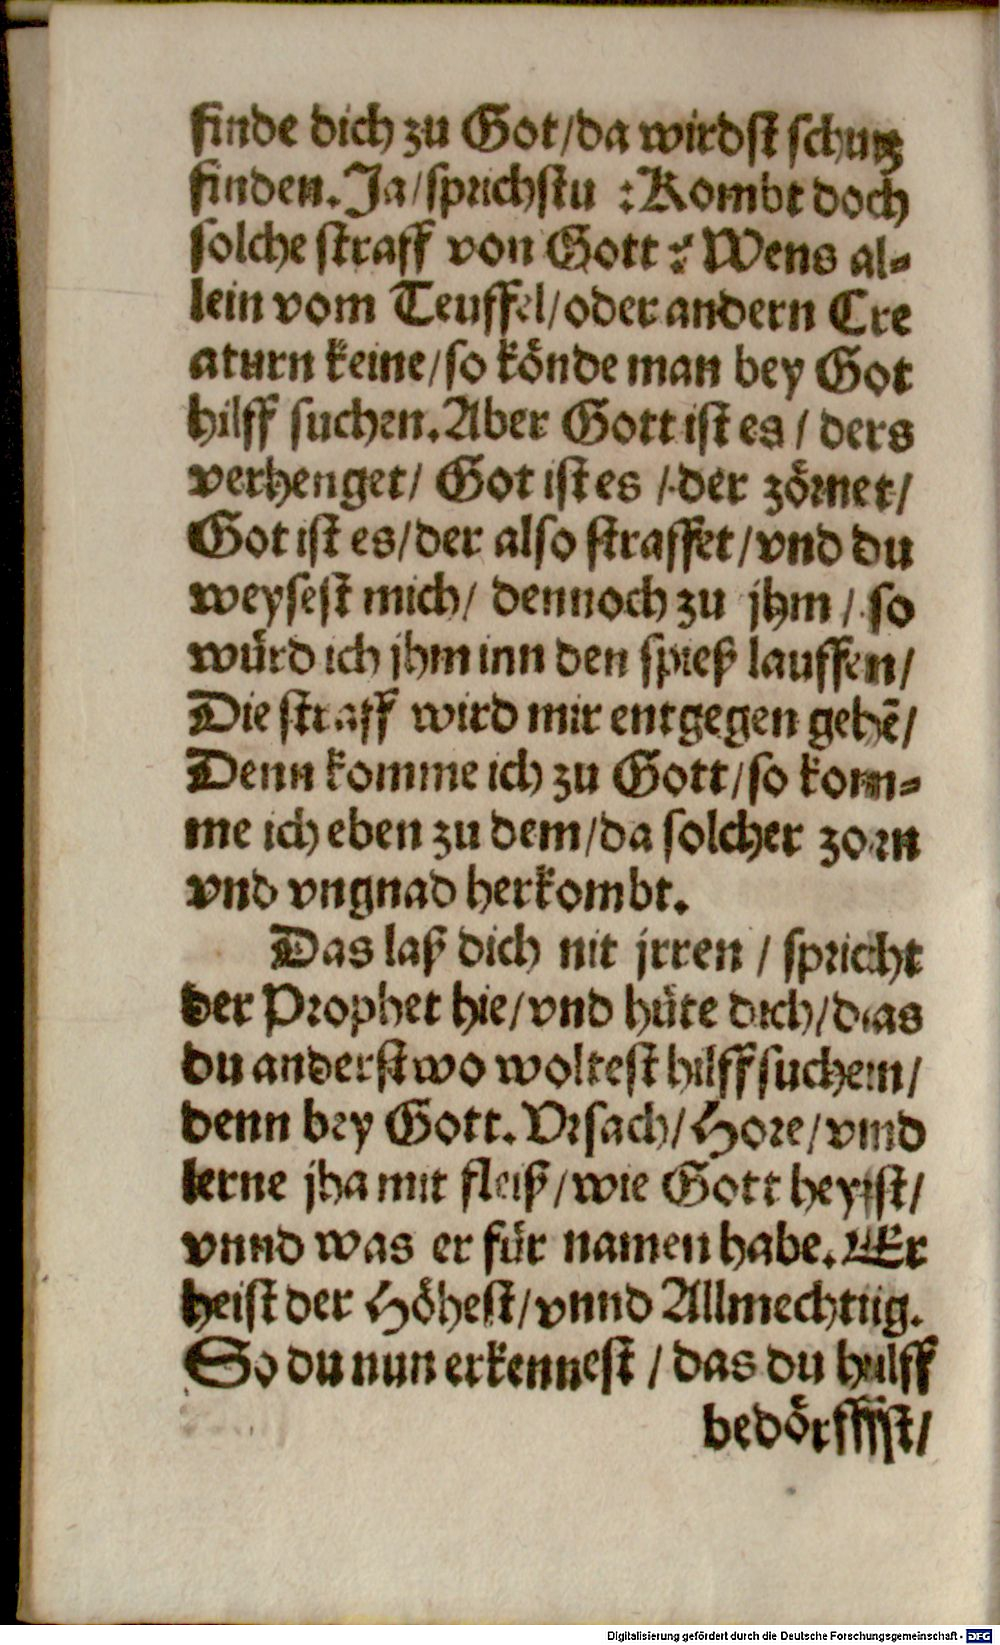 finde dich zu Got/da wirdst schutz
finden. Ja/sprichstu : Kombt doch
solche straff von Gott? Wens al-
lein vom Teuffel/oder andern Cre
aturn keine/so könde man bey Got
hilff suchen. Aber Gott ist es / ders
verhenget/ Got ist es / der zörnet/
Got ist es/der also straffet/vnd du
weysest mich/ dennoch zu jhm / so
würd ich jhm inn den spieß lauffen/
Die straff wird mir entgegen gehē/
Denn komme ich zu Gott/so kom-
me ich eben zu dem/da solcher zorn
vnd vngnad herkombt.
Das laß dich nit jrren / spricht
der Prophet hie/vnd hüte dich/das
du anderstwo woltest hilff suchen/
denn bey Gott. Vrsach/Hore/vnd
lerne jha mit fleiß/wie Gott heyst/
vnnd was er für namen habe. Er
heist der Höhest/vnnd Allmechtig.
So du nun erkennest / das du hulff
bedörffst/
Digitalisierung gefördert durch die Deutsche Forschungsgemeinschaft - DFG